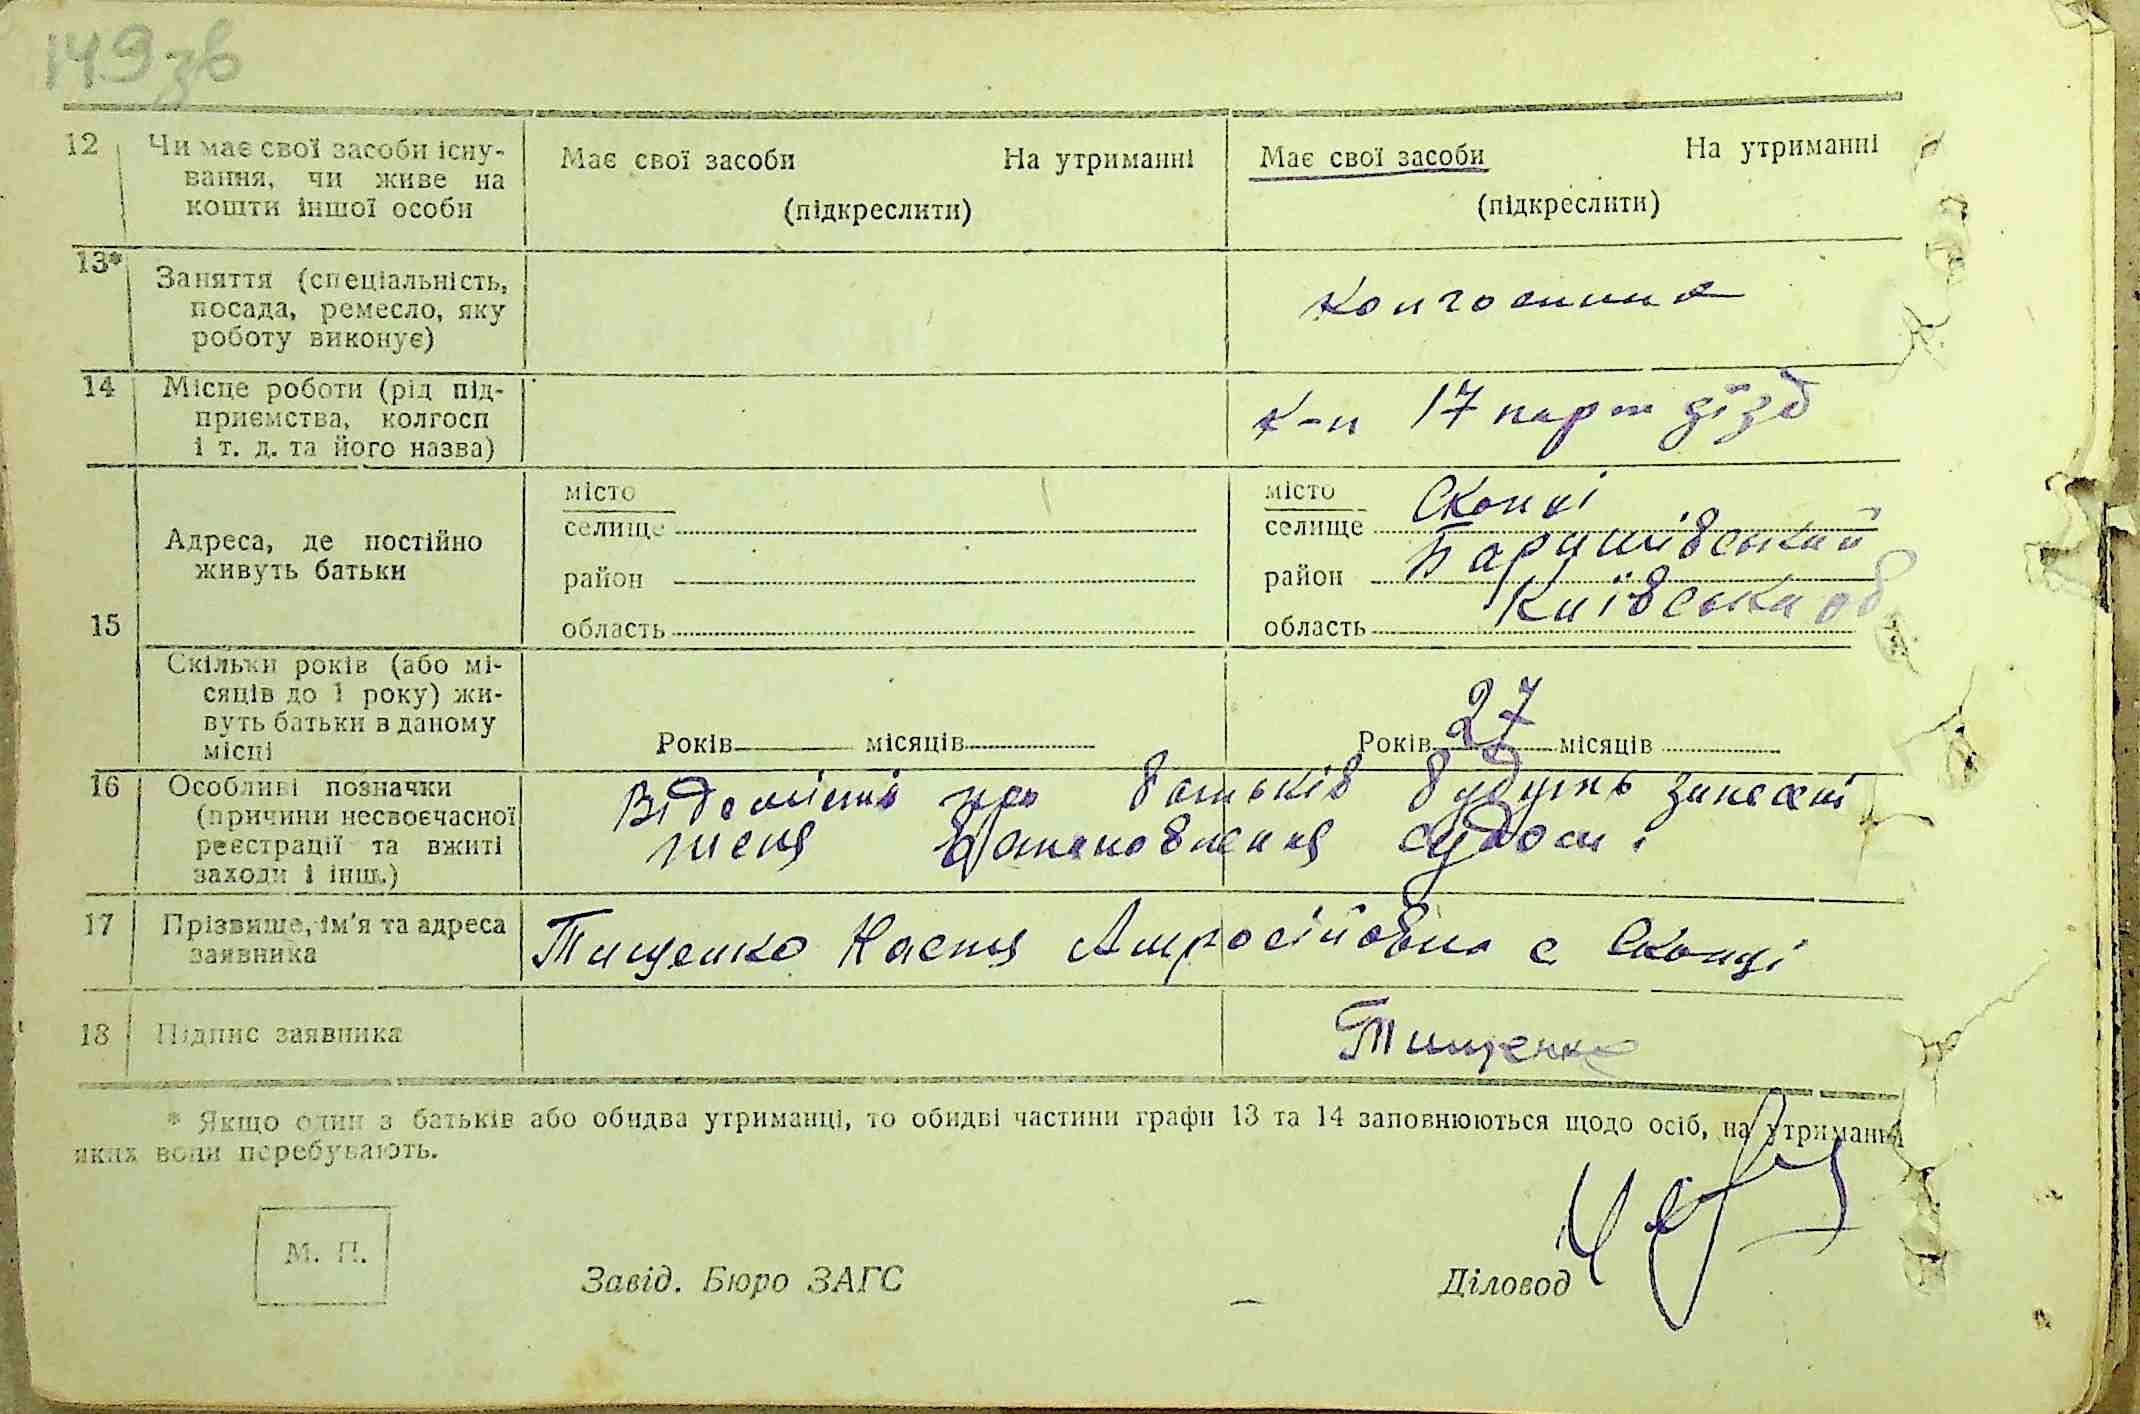 149 зв
12 Чи має свої засоби існу-
вання, чи живе на
кошти іншої особи
Має свої засоби На утриманні
(підкреслити)
Має свої засоби На утриманні
(підкреслити)
13* Заняття (спеціальність,
посада, ремесло, яку
роботу виконує)
колгоспник
14 Місце роботи (рід під-
приємства, колгосп
і т. д. та його назва)
к-п 17 парт зїзд
15 Адреса, де постійно
живуть батьки
місто
селище
район
область
місто
селище Скопці
район Баришівський
область Київська об
Скільки років (або мі-
сяців до 1 року) жи-
вуть батьки в даному
місці
Років місяців
Років 27 місяців
16 Особливі позначки
(причини несвоєчасної
реєстрації та вжиті
заходи і інш.)
Відомісті про батьків будуть занесені
після встановлення судом.
17 Прізвище, ім'я та адреса
заявника
Тищенко Настя Амросіївна с Скопці
18 Підпис заявника
Тищенко
* Якщо один з батьків або обидва утриманці, то обидві частини графи 13 та 14 заповнюються щодо осіб, на утриманні
яких вони перебувають.
М. П.
Завід. Бюро ЗАГС
Діловод